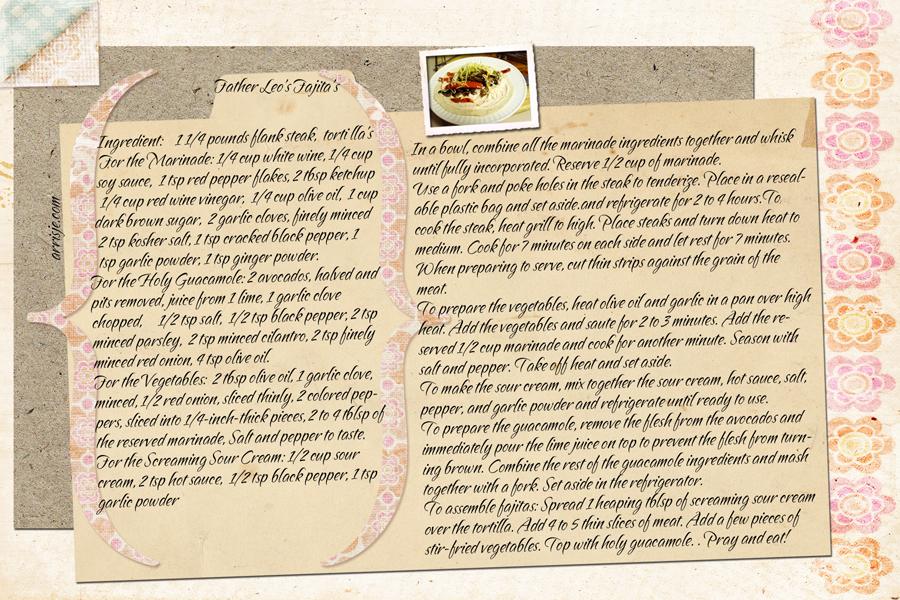 Father Leo's Fajita's
Ingredient: 1 1/4 pounds flank steak, tortilla's
For the Marinade: 1/4 cup white wine, 1/4 cup
soy sauce, 1 tsp red pepper flakes, 2 tbsp ketchup
1/4 cup red wine vinegar, 1/4 cup olive oil, 1 cup
dark brown sugar, 2 garlic cloves, finely minced
2 tsp kosher salt, 1 tsp cracked black pepper, 1
tsp garlic powder, 1 tsp ginger powder.
For the Holy Guacamole: 2 avocados, halved and
pits removed, juice from 1 lime, 1 garlic clove
chopped, 1/2 tsp salt, 1/2 tsp black pepper, 2 tsp
minced parsley, 2 tsp minced cilantro, 2 tsp finely
minced red onion, 4 tsp olive oil.
For the Vegetables: 2 tbsp olive oil, 1 garlic clove,
minced, 1/2 red onion, sliced thinly, 2 colored pep-
pers, sliced into 1/4-inch-thick pieces, 2 to 4 tblsp of
the reserved marinade, Salt and pepper to taste.
For the Screaming Sour Cream: 1/2 cup sour
cream, 2 tsp hot sauce, 1/2 tsp black pepper, 1 tsp
garlic powder
In a bowl, combine all the marinade ingredients together and whisk
until fully incorporated. Reserve 1/2 cup of marinade.
Use a fork and poke holes in the steak to tenderize. Place in a reseal-
able plastic bag and set aside.and refrigerate for 2 to 4 hours.To
cook the steak, heat grill to high. Place steaks and turn down heat to
medium. Cook for 7 minutes on each side and let rest for 7 minutes.
When preparing to serve, cut thin strips against the grain of the
meat.
To prepare the vegetables, heat olive oil and garlic in a pan over high
heat. Add the vegetables and saute for 2 to 3 minutes. Add the re-
served 1/2 cup marinade and cook for another minute. Season with
salt and pepper. Take off heat and set aside.
To make the sour cream, mix together the sour cream, hot sauce, salt,
pepper, and garlic powder and refrigerate until ready to use.
To prepare the guacamole, remove the flesh from the avocados and
immediately pour the lime juice on top to prevent the flesh from turn-
ing brown. Combine the rest of the guacamole ingredients and mash
together with a fork. Set aside in the refrigerator.
To assemble fajitas: Spread 1 heaping tblsp of screaming sour cream
over the tortilla. Add 4 to 5 thin slices of meat. Add a few pieces of
stir-fried vegetables. Top with holy guacamole. . Pray and eat!